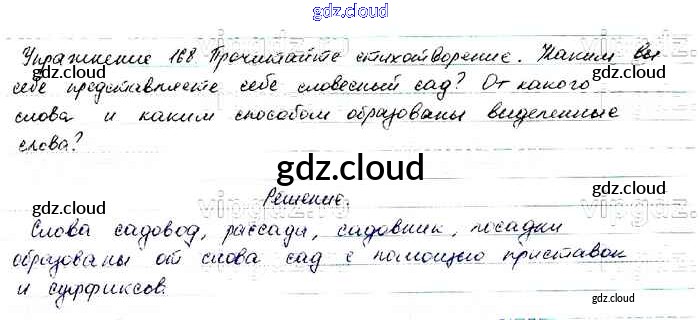 gdz.cloud
Упражнение 168. Прочитайте стихотворение. Каким вы
gdz.cloud gdz.cloud
себе представляете себе словесный сад? От какого
слова и каким способом образованы выделенные
слова?
gdz.cloud
gdz.cloud Решение. gdz.cloud
vipgdz.ru vipgdz.ru
Слова садовод, рассади, садовник, посадки
образованы от слова сад с помощью приставок
и суффиксов.
gdz.cloud